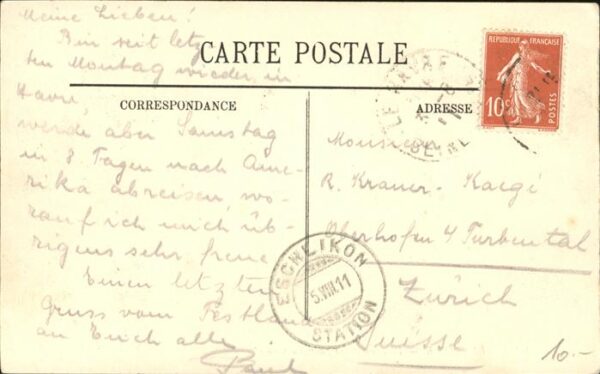 Meine Lieben!
Bin seit letz-
ten Montag wieder in
Havre,
werde aber Samstag
in 8 Tagen nach Ame-
rika abreisen, wo-
rauf ich mich üb-
rigens sehr freue
Einen letzten
Gruss vom Festland
an Euch alle
Paul
CARTE POSTALE
CORRESPONDANCE
ADRESSE
REPUBLIQUE FRANÇAISE
10c
LE HAVRE
SEINE
Monsieur
R. Krauer-Kaegi
Oberhofen 4 Turbental
Zürich
Suisse
ESCHLIKON
5.VIII.11
STATION
10.-